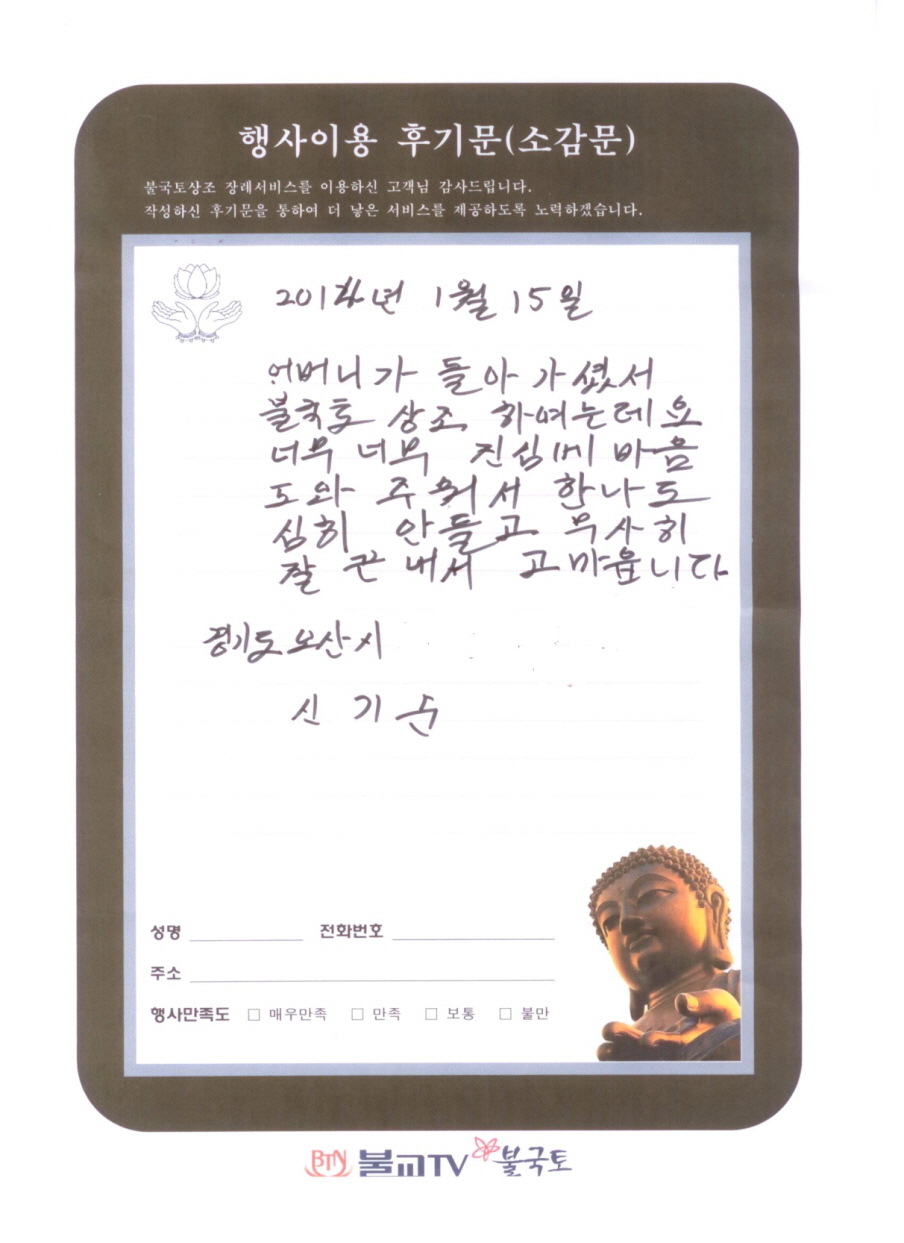 행사이용 후기문(소감문)
불국토상조 장례서비스를 이용하신 고객님 감사드립니다.
작성하신 후기문을 통하여 더 낳은 서비스를 제공하도록 노력하겠습니다.
2014년 1월 15일
어머니가 돌아가셨서
불국토 상조 하며는데요
너무 너무 진심에 마음
도와 주워서 한나도
심히 안들고 무사히
잘 끈내서 고마웁니다
경기도 오산시
신기순
성명 전화번호
주소
행사만족도 □ 매우만족 □ 만족 □ 보통 □ 불만
BTN 불교TV 불국토